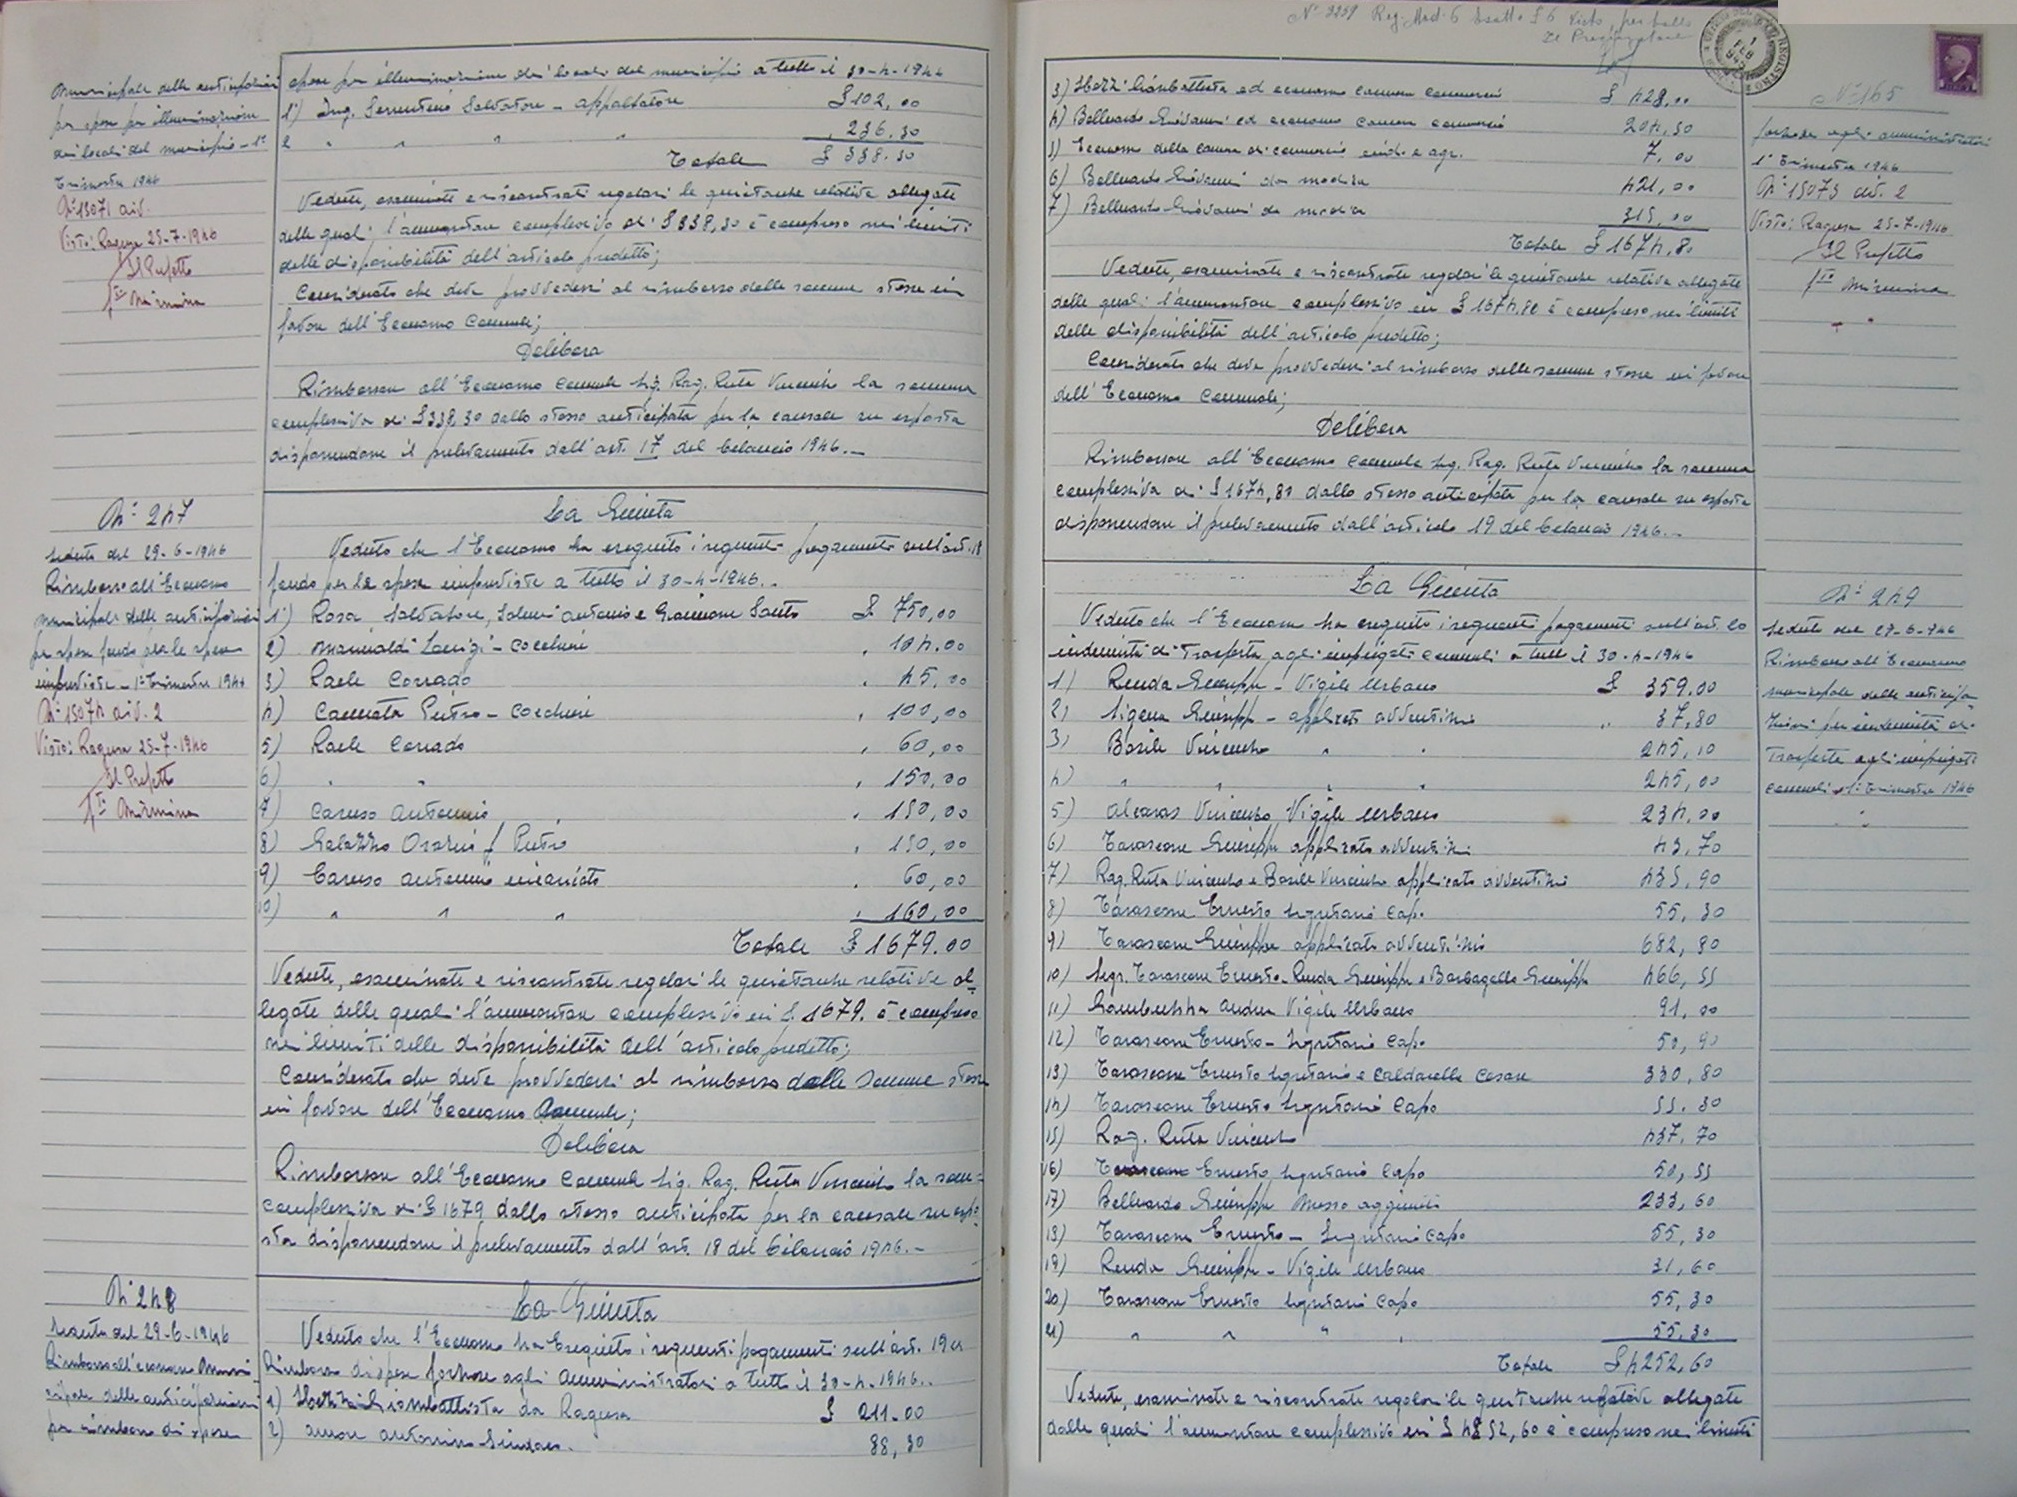 Municipale delle anticipazioni
per spese per illuminazione
dei locali del municipio - 1°
Trimestre 1946
N° 15071 div.
Visto: Ragusa 25-7-1946
Il Prefetto
Fto Mirmina
spese per illuminazione dei locali del municipio a tutto il 30-4-1946
1) Ing. Sorrentino Salvatore - appaltatore £ 102,00
2 " " " 236.30
Totale £ 338.30
Vedute, esaminate e riscontrati regolari le quietanze relative allegate
delle quali l'ammontare complessivo di £ 338,30 è compreso nei limiti
delle disponibilità dell'articolo predetto;
Considerato che deve provvedersi al rimborso delle somme stesse in
favore dell'Economo Comunale;
Delibera
Rimborsare all'Economo Comunale Sig. Rag. Ruta Vincenzo la somma
complessiva di £ 338,30 dallo stesso anticipata per la causale su esposta
disponendone il prelevamento dall'art. 17 del bilancio 1946.-
N° 247
Seduta del 29-6-1946
Rimborso all'Economo
municipale delle anticipazioni
per spese fondo per le spese
impreviste - 1° Trimestre 1946
N° 15074 div. 2
Visto: Ragusa 25-7-1946
Il Prefetto
Fto Mirmina
La Giunta
Veduto che l'Economo ha eseguito i seguenti pagamenti sull'art. 18
fondo per le spese impreviste a tutto il 30-4-1946.-
1) Rosa Salvatore, Salemi Antonio e Giaimone Santo £ 750,00
2) Mainaldi Luigi - Cocchieri " 104.00
3) Raele Corrado " 45,00
4) Cannata Pietro - Cocchieri " 100,00
5) Raele Corrado " 60,00
6) " " " 150,00
7) Caruso Antonino " 150,00
8) Galazzo Orazio f Pietro " 150,00
9) Caruso Antonino incaricato " 60,00
10) " " " " 160,00
Totale £ 1679.00
Vedute, esaminate e riscontrate regolari le quietanze relative al-
legate delle quali l'ammontare complessivo in £. 1679. è compreso
nei limiti delle disponibilità dell'articolo predetto;
Considerato che deve provvedersi al rimborso delle somme stesse
in favore dell'Economo Comunale;
Delibera
Rimborsare all'Economo Comunale Sig. Rag. Ruta Vincenzo la som=
complessiva di £ 1679 dallo stesso anticipata per la causale su espo=
sta disponendone il prelevamento dall'art. 18 del bilancio 1946.-
N° 248
Seduta del 29-6-1946
Rimborso all'economo Muni-
cipale delle anticipazioni
per rimborso di spese
La Giunta
Veduto che l'Economo ha eseguito i seguenti pagamenti sull'art. 19 di
Rimborso di spese forzose agli Amministratori a tutto il 30-4-1946.-
1) Giambattista da Ragusa £ 211.00
2) Amore Antonino Sindaco. 88,30
N° 3259 Reg. Mod. 6 Esatte £ 6 Visto, per bollo
Il Procuratore
REGISTRO
1 FEB
N° 145
3) Giambattista ed economo camera commercio £ 428,00
4) Belluardo Giovanni ed economo camera commercio 204,50
5) Economo della camera di commercio ind. e agr. 7,00
6) Belluardo Giovanni da Modica 421,00
7) Belluardo Giovanni da Modica 315,00
Totale £ 1674,80
Vedute, esaminate e riscontrate regolari le quietanze relative allegate
delle quali l'ammontare complessivo in £ 1674,80 è compreso nei limiti
delle disponibilità dell'articolo predetto;
Considerato che deve provvedersi al rimborso delle somme stesse in favore
dell'Economo Comunale;
Delibera
Rimborsare all'Economo Comunale Sig. Rag. Ruta Vincenzo la somma
complessiva di £ 1674,80 dallo stesso anticipata per la causale su esposta
disponendone il prelevamento dall'articolo 19 del bilancio 1946.-
forzose agli amministratori
1° Trimestre 1946
N° 15073 div. 2
Visto: Ragusa 25-7-1946
Il Prefetto
Fto Mirmina
La Giunta
Veduto che l'Economo ha eseguito i seguenti pagamenti sull'art. 20
indennità di Trasferta agli impiegati comunali a tutto il 30-4-1946
1) Renda Giuseppe - Vigile Urbano £ 359.00
2) Sigona Giuseppe - applicato avventizio " 37,80
3) Basile Vincenzo " " 245,10
4) " " " 245,00
5) Alcaras Vincenzo Vigile Urbano 234,00
6) Tarascone Giuseppe applicato avventizio 43,70
7) Rag. Ruta Vincenzo e Basile Vincenzo applicato avventizio 435,90
8) Tarascone Ernesto Segretario Capo 55,30
9) Tarascone Giuseppe applicato avventizio 682,80
10) Segr. Tarascone Ernesto - Renda Giuseppe e Barbagallo Giuseppe 466,55
11) Andrea Vigile Urbano 91,00
12) Tarascone Ernesto - Segretario Capo 50,90
13) Tarascone Ernesto Segretario e Caldarella Cesare 330,80
14) Tarascone Ernesto Segretario Capo 55.30
15) Rag. Ruta Vincenzo 437,70
16) Tarascone Ernesto Segretario Capo 50,55
17) Belluardo Giuseppe Messo aggiunto 233,60
18) Tarascone Ernesto - Segretario Capo 55,30
19) Renda Giuseppe - Vigile Urbano 31,60
20) Tarascone Ernesto Segretario Capo 55,30
21) " " " " 55.30
Totale £ 4252,60
Vedute, esaminate e riscontrate regolari le quietanze relative allegate
dalle quali l'ammontare complessivo in £ 4852,60 è compreso nei limiti
N° 249
Seduta del 27-6-946
Rimborso all'Economo
municipale delle anticipa-
zioni per indennità di
Trasferta agli impiegati
comunali - 1° Trimestre 1946